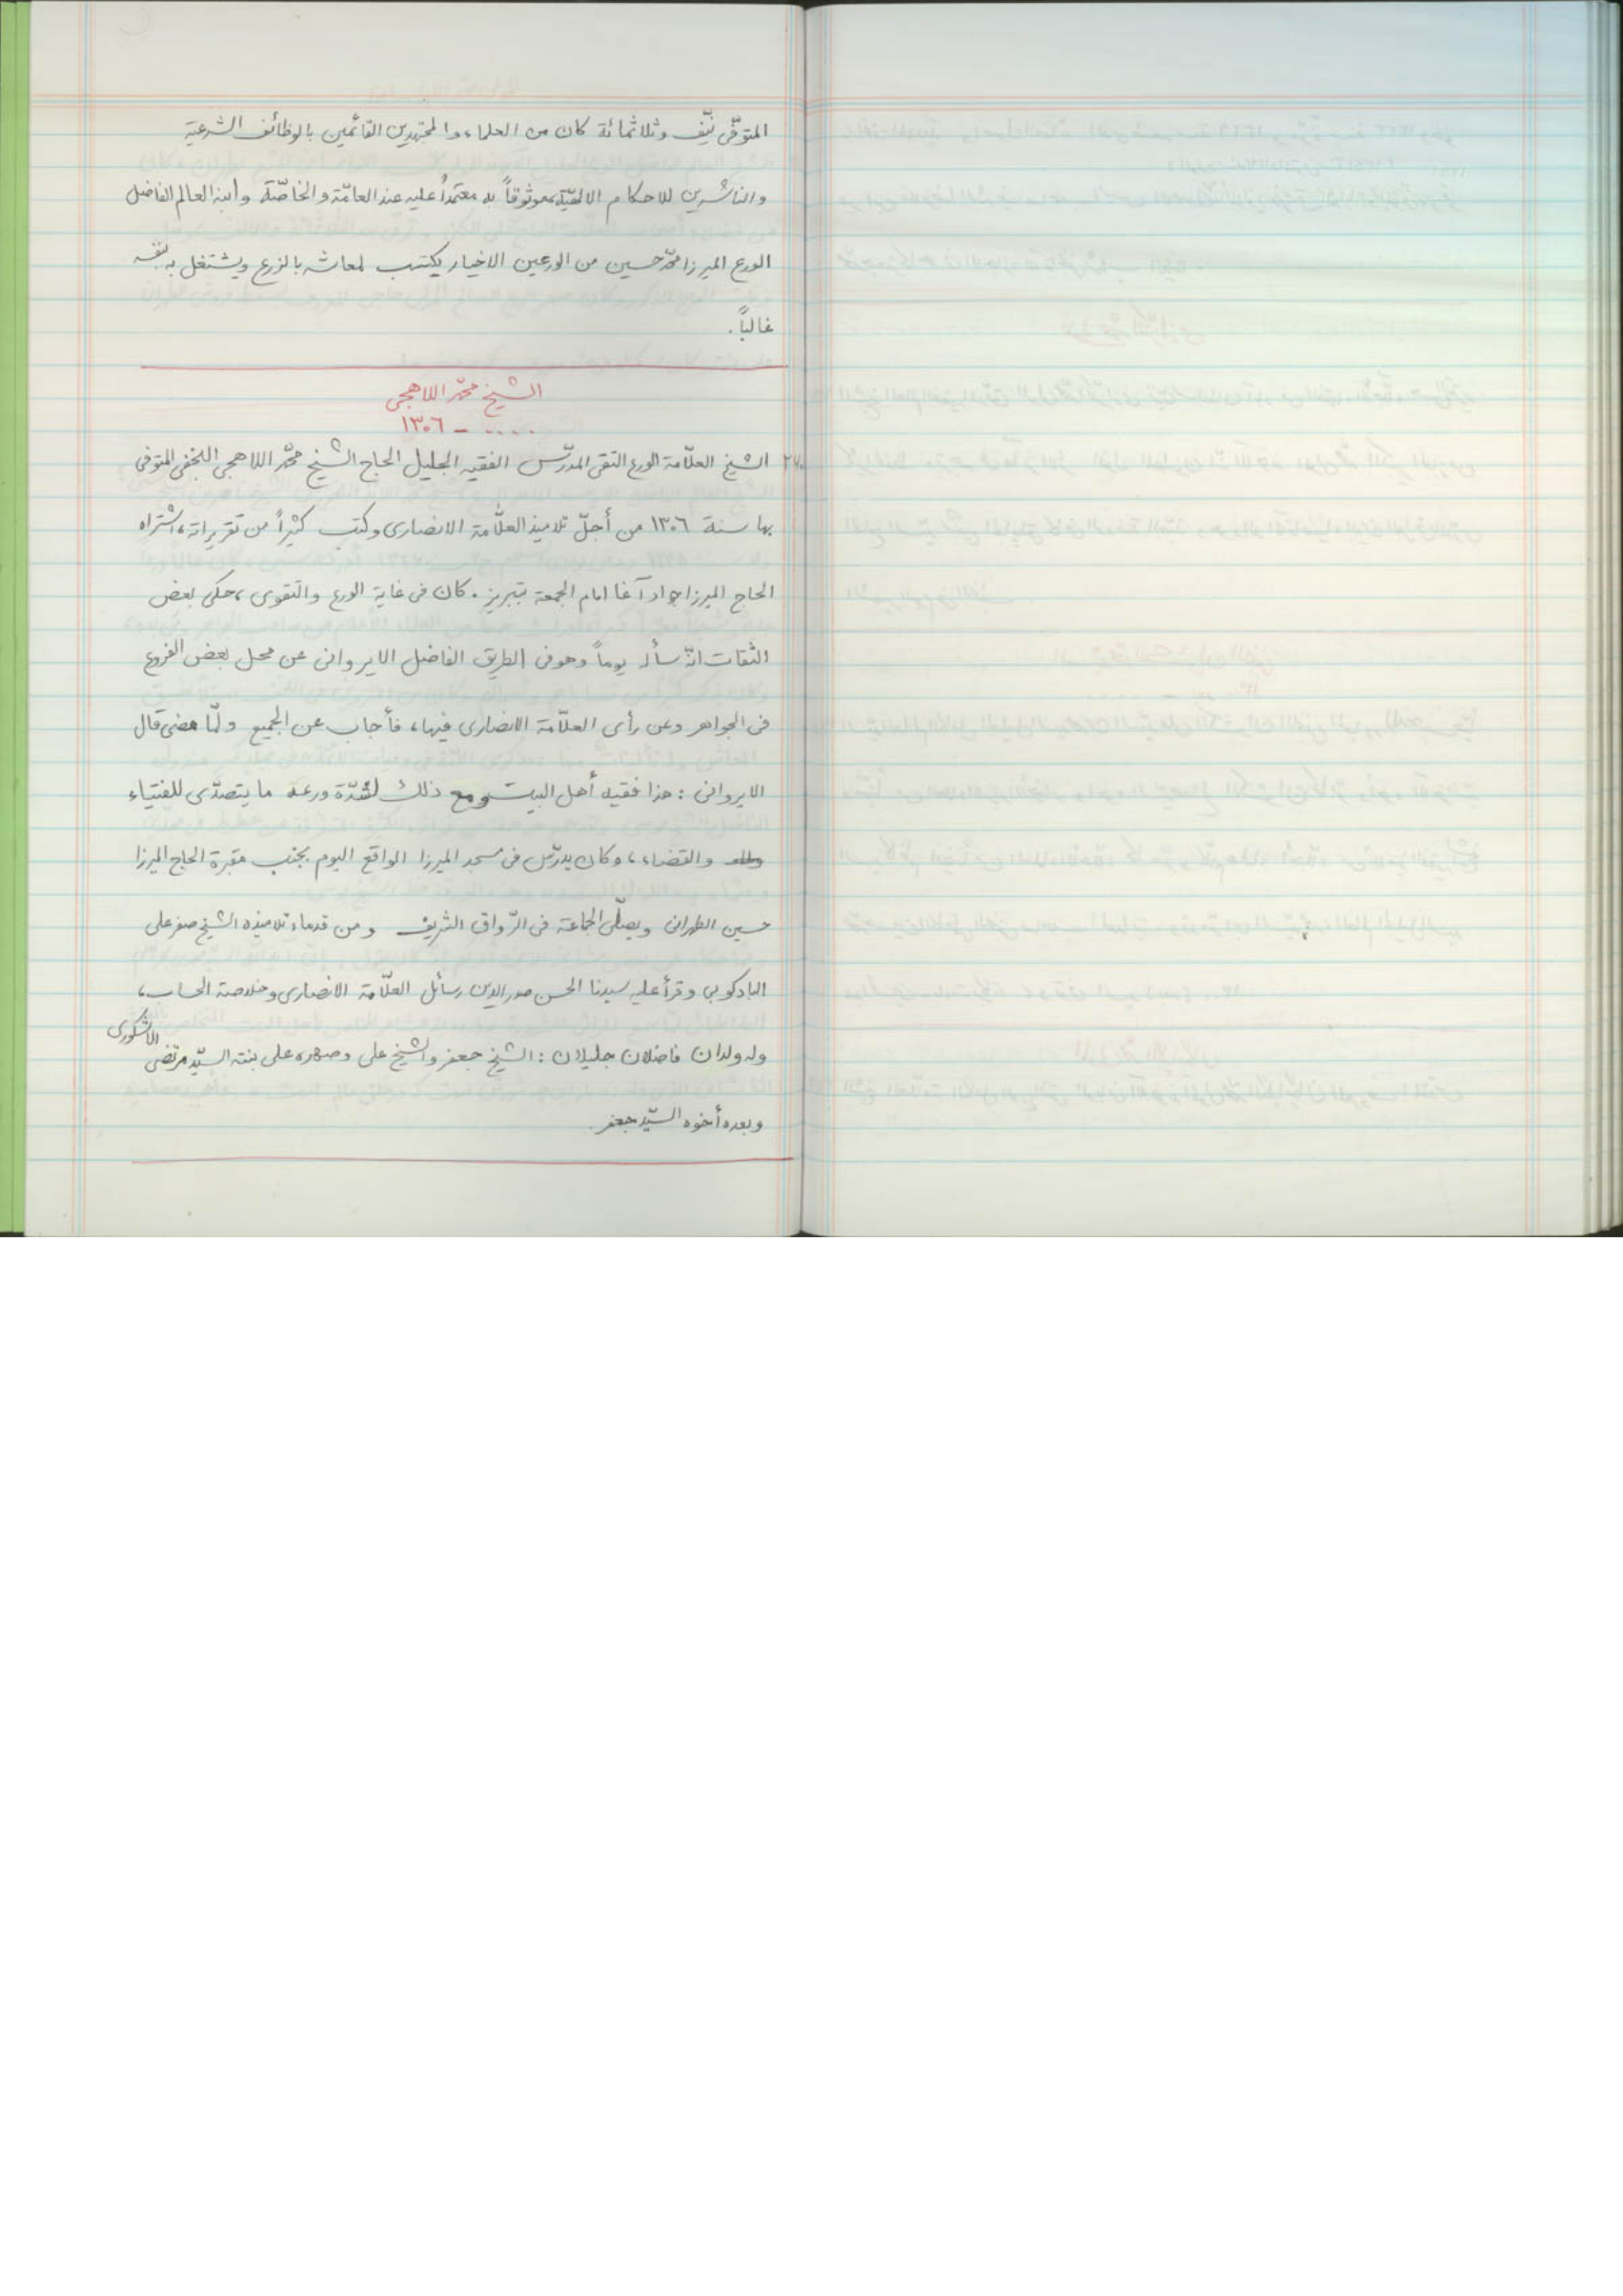 المتوفّى نيّف وثلاثمائة كان من العلماء والمجتهدين القائمين بالوظائف الشرعيّة
والناشرين للاحكام الالهيّة، موثوقاً به معتمداً عليه عند العامّة والخاصّة وابنه العالم الفاضل
الورع الميرزا محمّد حسين من الورعين الاخيار يكتسب لمعاشه بالزرع ويشتغل به بنفسه
غالباً.
الشيخ محمّد اللاهجي
.... - ١٣٠٦
الشيخ العلّامة الورع التقى المدرّس الفقيه الجليل الحاج الشيخ محمّد اللاهجى النجفى المتوفى
بها سنة ١٣٠٦ من أجلّ تلاميذ العلّامة الانصارى وكتب كثيراً من تقريراته، اشتراه
الحاج الميرزا جواد آغا امام الجمعة بتبريز. كان فى غاية الورع والتقوى، حكى بعض
الثقات انّه سأله يوماً وهو فى الطريق الفاضل الايروانى عن محل بعض الفروع
فى الجواهر وعن رأى العلّامة الانصارى فيها، فأجاب عن الجميع ولمّا مضى قال
الايروانى : هذا فقيه أهل البيت ومع ذلك لشدّة ورعه ما يتصدّى للفتياء
والقضاء، وكان يدرّس فى مسجد الميرزا الواقع اليوم بجنب مقبرة الحاج الميرزا
حسين الطهرانى ويصلّى الجماعة فى الرّواق الشريف ومن قدماء تلاميذه الشيخ صفر على
البادكوبى وقرأ عليه سيدنا الحسن صدر الدين رسائل العلّامة الانصارى وخلاصة الحساب،
وله ولدان فاضلان جليلان : الشيخ جعفر والشيخ على وصهره على بنته السيّد مرتضى الاشكورى
وبعده أخوه السيّد جعفر.